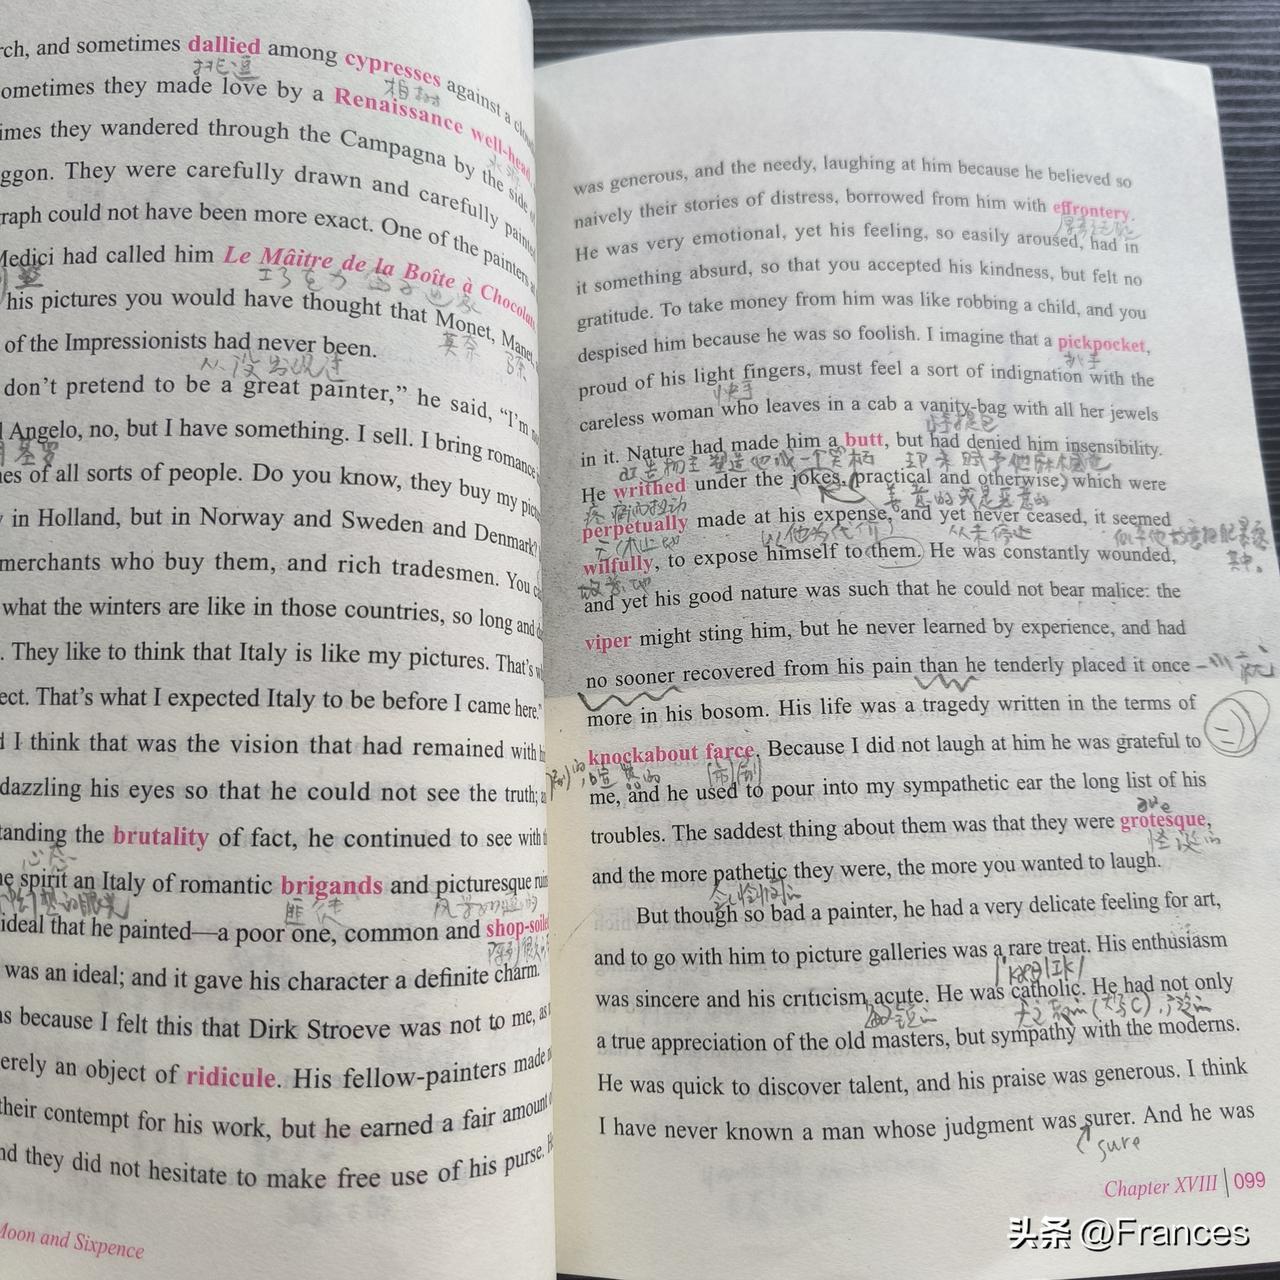 rch, and sometimes dallied among cypresses against a
挑逗
ometimes they made love by a Renaissance well-head
柏树
imes they wandered through the Campagna by the side
ggon. They were carefully drawn and carefully painted
raph could not have been more exact. One of the painters
Medici had called him Le Mâitre de la Boîte à Chocolats
his pictures you would have thought that Monet, Manet,
莫奈
of the Impressionists had never been.
从没出现过
don't pretend to be a great painter,” he said, “I'm
l Angelo, no, but I have something. I sell. I bring romance
基罗
es of all sorts of people. Do you know, they buy my
in Holland, but in Norway and Sweden and Denmark?
merchants who buy them, and rich tradesmen. You
what the winters are like in those countries, so long and
. They like to think that Italy is like my pictures. That's
ect. That's what I expected Italy to be before I came here.”
I think that was the vision that had remained with
dazzling his eyes so that he could not see the truth;
tanding the brutality of fact, he continued to see with
心态
e spirit an Italy of romantic brigands and picturesque
匪徒
ideal that he painted—a poor one, common and shop-soiled
was an ideal; and it gave his character a definite charm.
as because I felt this that Dirk Stroeve was not to me, as
erely an object of ridicule. His fellow-painters made
their contempt for his work, but he earned a fair amount
nd they did not hesitate to make free use of his purse.
Moon and Sixpence
was generous, and the needy, laughing at him because he believed so
naively their stories of distress, borrowed from him with effrontery.
厚颜无耻
He was very emotional, yet his feeling, so easily aroused, had in
it something absurd, so that you accepted his kindness, but felt no
gratitude. To take money from him was like robbing a child, and you
despised him because he was so foolish. I imagine that a pickpocket,
扒手
proud of his light fingers, must feel a sort of indignation with the
快手
careless woman who leaves in a cab a vanity-bag with all her jewels
手提包
in it. Nature had made him a butt, but had denied him insensibility.
造物主塑造他成一个笑柄 却未赋予他麻木
He writhed under the jokes, practical and otherwise, which were
善意的或是恶意的
perpetually made at his expense, and yet never ceased, it seemed
不休止的 以他为代价 从未停止
wilfully, to expose himself to them. He was constantly wounded,
故意地 其中。
and yet his good nature was such that he could not bear malice: the
viper might sting him, but he never learned by experience, and had
no sooner recovered from his pain than he tenderly placed it once
一…就
more in his bosom. His life was a tragedy written in the terms of
knockabout farce. Because I did not laugh at him he was grateful to
me, and he used to pour into my sympathetic ear the long list of his
troubles. The saddest thing about them was that they were grotesque,
怪诞的
and the more pathetic they were, the more you wanted to laugh.
But though so bad a painter, he had a very delicate feeling for art,
and to go with him to picture galleries was a rare treat. His enthusiasm
was sincere and his criticism acute. He was catholic. He had not only
敏锐的
a true appreciation of the old masters, but sympathy with the moderns.
He was quick to discover talent, and his praise was generous. I think
I have never known a man whose judgment was surer. And he was
sure
Chapter XVIII | 099
头条 @Frances